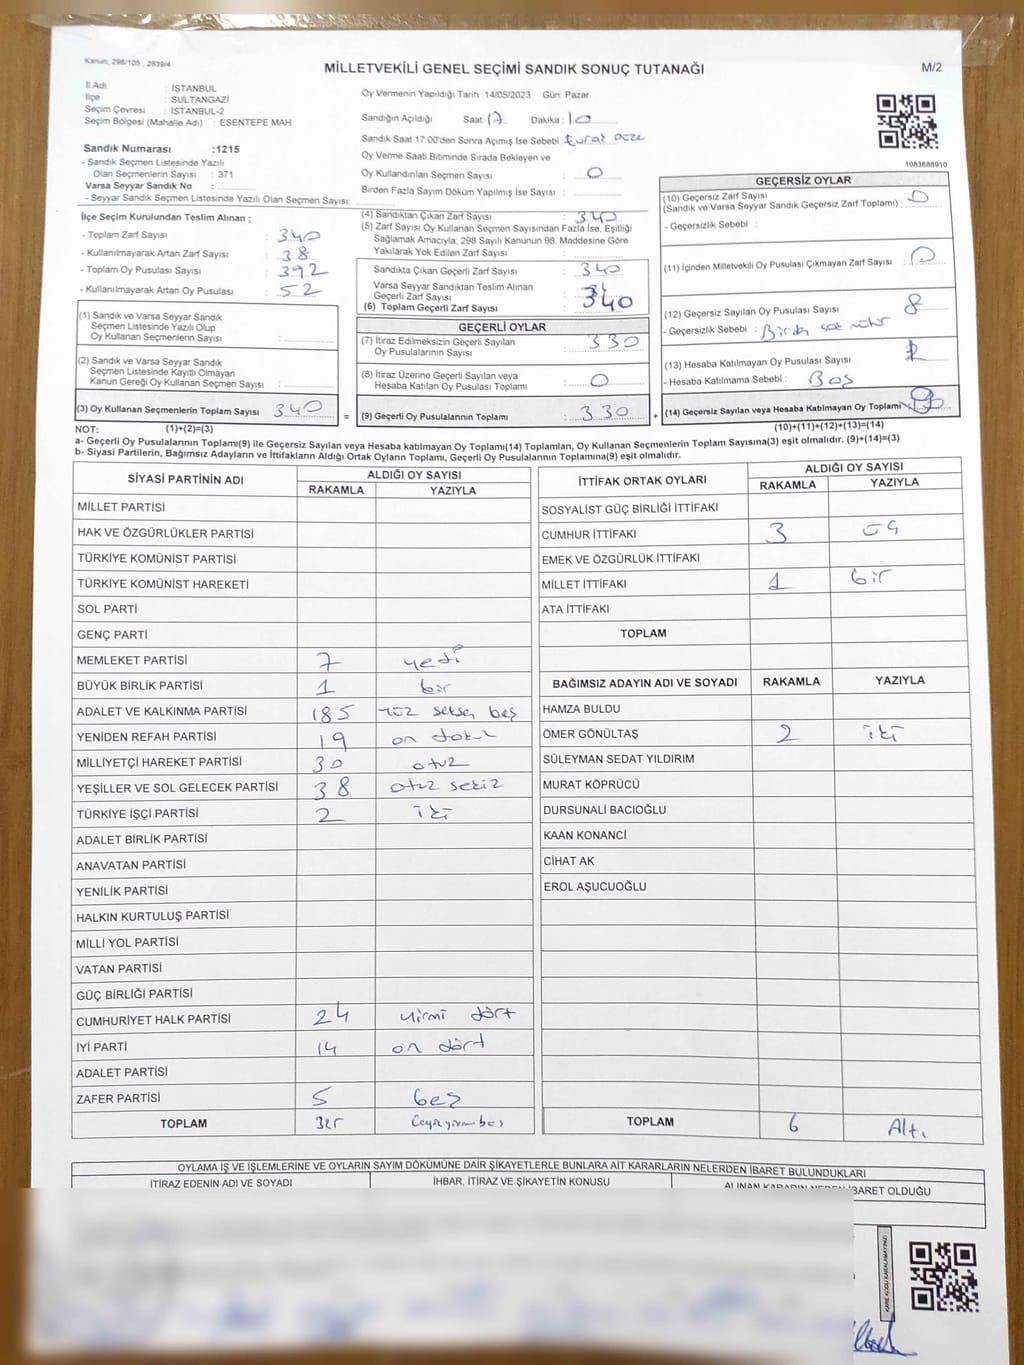 Kanun; 298/105 , 2839/4
MİLLETVEKİLİ GENEL SEÇİMİ SANDIK SONUÇ TUTANAĞI
M/2
İl Adı : İSTANBUL
İlçe : SULTANGAZİ
Seçim Çevresi : İSTANBUL-2
Seçim Bölgesi (Mahalle Adı) : ESENTEPE MAH.
Sandık Numarası :1215
- Sandık Seçmen Listesinde Yazılı
Olan Seçmenlerin Sayısı : 371
Varsa Seyyar Sandık No :
- Seyyar Sandık Seçmen Listesinde Yazılı Olan Seçmen Sayısı:
Oy Vermenin Yapıldığı Tarih :14/05/2023 Gün: Pazar
Sandığın Açıldığı Saat 17 Dakika : 10
Sandık Saat 17:00'den Sonra Açımış İse Sebebi : Evrak
Oy Verme Saati Bitiminde Sırada Bekleyen ve
Oy Kullandırılan Seçmen Sayısı : 0
Birden Fazla Sayım Döküm Yapılmış İse Sayısı :
1083688910
İlçe Seçim Kurulundan Teslim Alınan ;
- Toplam Zarf Sayısı : 340
- Kullanılmayarak Artan Zarf Sayısı : 38
- Toplam Oy Pusulası Sayısı : 392
- Kullanılmayarak Artan Oy Pusulası : 52
(1) Sandık ve Varsa Seyyar Sandık
Seçmen Listesinde Yazılı Olup
Oy Kullanan Seçmenlerin Sayısı :
(2) Sandık ve Varsa Seyyar Sandık
Seçmen Listesinde Kayıtlı Olmayan
Kanun Gereği Oy Kullanan Seçmen Sayısı :
(3) Oy Kullanan Seçmenlerin Toplam Sayısı 340 =
(4) Sandıktan Çıkan Zarf Sayısı : 340
(5) Zarf Sayısı Oy Kullanan Seçmen Sayısından Fazla İse, Eşitliği
Sağlamak Amacıyla; 298 Sayılı Kanunun 98. Maddesine Göre
Yakılarak Yok Edilen Zarf Sayısı :
Sandıkta Çıkan Geçerli Zarf Sayısı : 340
Varsa Seyyar Sandıktan Teslim Alınan
Geçerli Zarf Sayısı
(6) Toplam Geçerli Zarf Sayısı : 340
GEÇERLİ OYLAR
(7) İtiraz Edilmeksizin Geçerli Sayılan
Oy Pusulalarının Sayısı : 330
(8) İtiraz Üzerine Geçerli Sayılan veya
Hesaba Katılan Oy Pusulası Toplamı : 0
(9) Geçerli Oy Pusulalarının Toplamı : 330 +
GEÇERSİZ OYLAR
(10) Geçersiz Zarf Sayısı
(Sandık ve Varsa Seyyar Sandık Geçersiz Zarf Toplamı) : 0
- Geçersizlik Sebebi :
(11) İçinden Milletvekili Oy Pusulası Çıkmayan Zarf Sayısı : 0
(12) Geçersiz Sayılan Oy Pusulası Sayısı : 8
- Geçersizlik Sebebi : Birden çok mühür
(13) Hesaba Katılmayan Oy Pusulası Sayısı :
- Hesaba Katılmama Sebebi : Boş
(14) Geçersiz Sayılan veya Hesaba Katılmayan Oy Toplamı
NOT: (1)+(2)=(3)
(10)+(11)+(12)+(13)=(14)
a- Geçerli Oy Pusulalarının Toplamı(9) ile Geçersiz Sayılan veya Hesaba katılmayan Oy Toplamı(14) Toplamları, Oy Kullanan Seçmenlerin Toplam Sayısına(3) eşit olmalıdır. (9)+(14)=(3)
b- Siyasi Partilerin, Bağımsız Adayların ve İttifakların Aldığı Ortak Oyların Toplamı, Geçerli Oy Pusulalarının Toplamına(9) eşit olmalıdır.
SİYASİ PARTİNİN ADI ALDIĞI OY SAYISI
RAKAMLA YAZIYLA
MİLLET PARTİSİ
HAK VE ÖZGÜRLÜKLER PARTİSİ
TÜRKİYE KOMÜNİST PARTİSİ
TÜRKİYE KOMÜNİST HAREKETİ
SOL PARTİ
GENÇ PARTİ
MEMLEKET PARTİSİ 7 yedi
BÜYÜK BİRLİK PARTİSİ 1 bir
ADALET VE KALKINMA PARTİSİ 185 yüz seksen beş
YENİDEN REFAH PARTİSİ 19 on dokuz
MİLLİYETÇİ HAREKET PARTİSİ 30 otuz
YEŞİLLER VE SOL GELECEK PARTİSİ 38 otuz sekiz
TÜRKİYE İŞÇİ PARTİSİ 2 iki
ADALET BİRLİK PARTİSİ
ANAVATAN PARTİSİ
YENİLİK PARTİSİ
HALKIN KURTULUŞ PARTİSİ
MİLLİ YOL PARTİSİ
VATAN PARTİSİ
GÜÇ BİRLİĞİ PARTİSİ
CUMHURİYET HALK PARTİSİ 24 yirmi dört
İYİ PARTİ 14 on dört
ADALET PARTİSİ
ZAFER PARTİSİ 5 beş
TOPLAM 325 üçyüzyirmibeş
İTTİFAK ORTAK OYLARI ALDIĞI OY SAYISI
RAKAMLA YAZIYLA
SOSYALİST GÜÇ BİRLİĞİ İTTİFAKI
CUMHUR İTTİFAKI 3 üç
EMEK VE ÖZGÜRLÜK İTTİFAKI
MİLLET İTTİFAKI 1 bir
ATA İTTİFAKI
TOPLAM
BAĞIMSIZ ADAYIN ADI VE SOYADI RAKAMLA YAZIYLA
HAMZA BULDU
ÖMER GÖNÜLTAŞ 2 iki
SÜLEYMAN SEDAT YILDIRIM
MURAT KÖPRÜCÜ
DURSUNALİ BACIOĞLU
KAAN KONANCİ
CİHAT AK
EROL AŞUCUOĞLU
TOPLAM 6 Altı
OYLAMA İŞ VE İŞLEMLERİNE VE OYLARIN SAYIM DÖKÜMÜNE DAİR ŞİKAYETLERLE BUNLARA AİT KARARLARIN NELERDEN İBARET BULUNDUKLARI
İTİRAZ EDENİN ADI VE SOYADI İHBAR, İTİRAZ VE ŞİKAYETİN KONUSU ALINAN KARARIN NEDEN İBARET OLDUĞU
KARE KODU KARALAMAYINIZ!